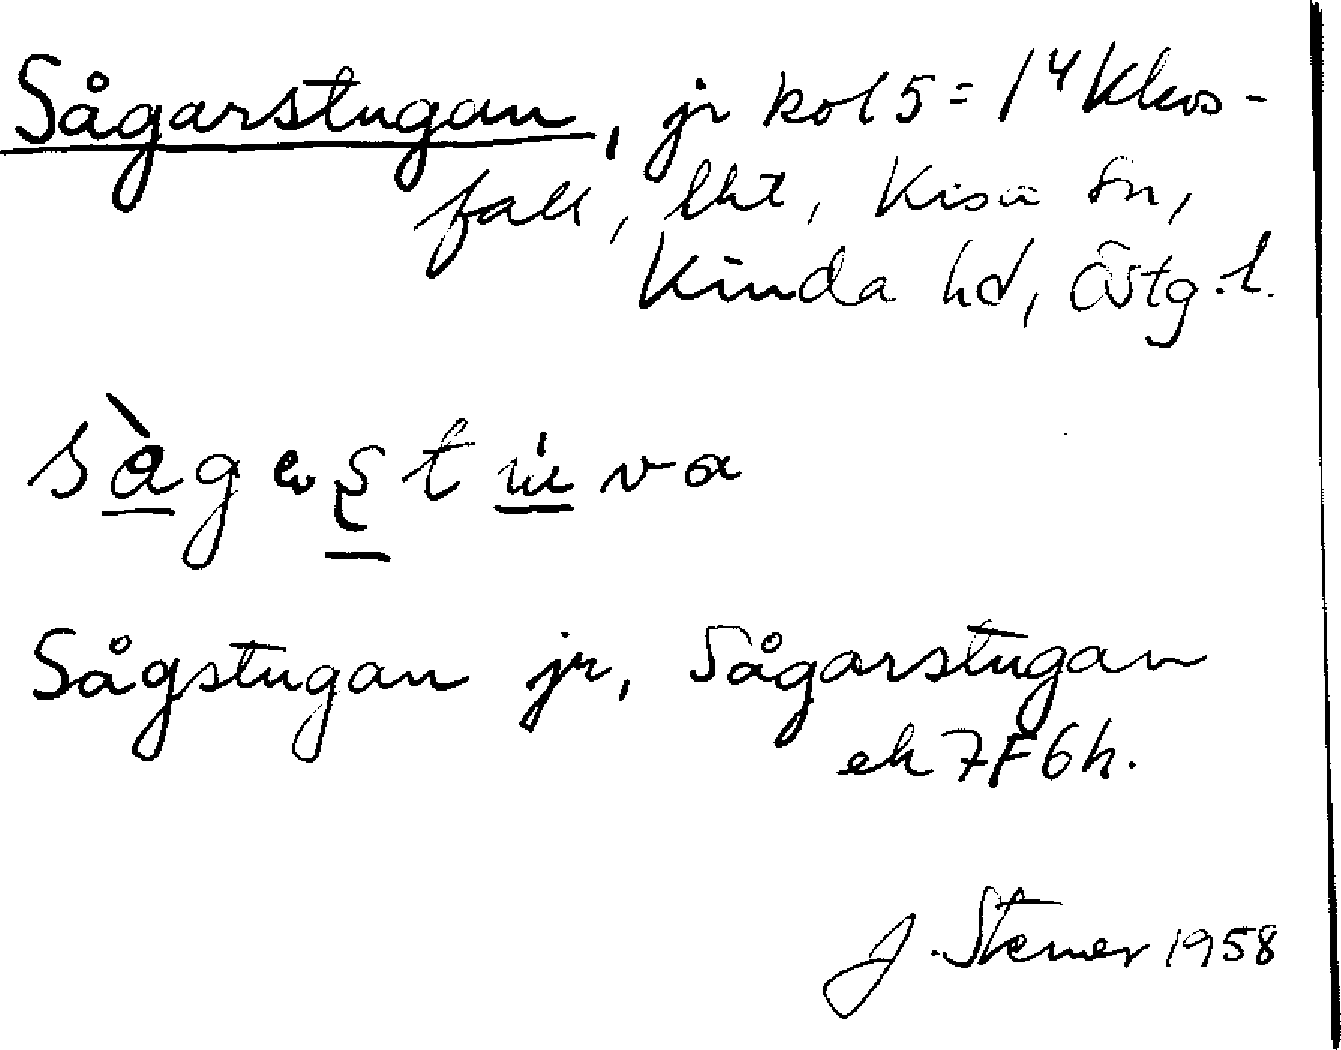 Sågarstugan, jr kol 5 = 1⁴ Klevs-
fall, lht, Kisa sn,
Kinda hd, Östg. l.
Sågstugan jr, Sågarstugan
ek 7F6h.
J. Stemer 1958